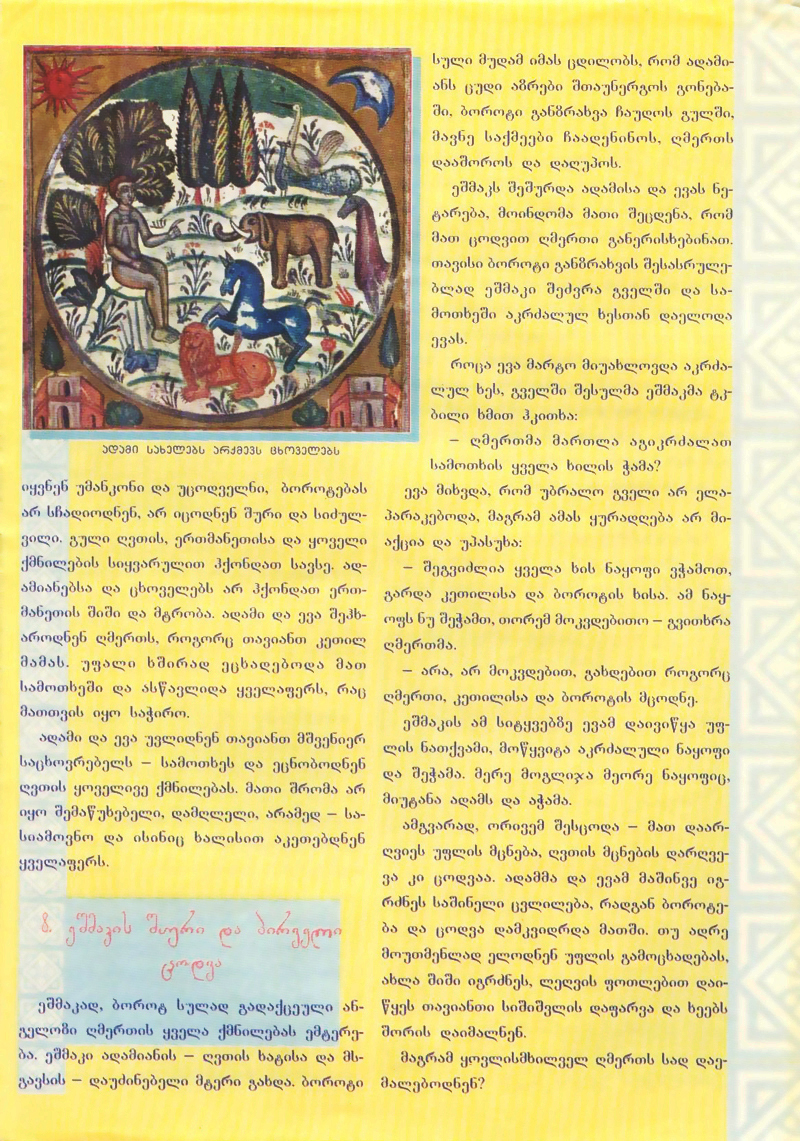 ადამი სახელებს არქმევს ცხოველებს
იყვნენ უმანკონი და უცოდველნი, ბოროტებას
არ სჩადიოდნენ, არ იცოდნენ შური და სიძულ-
ვილი. გული ღვთის, ერთმანეთისა და ყოველი
ქმნილების სიყვარულით ჰქონდათ სავსე. ად-
ამიანებსა და ცხოველებს არ ჰქონდათ ერთ-
მანეთის შიში და მტრობა. ადამი და ევა შეჰხ-
აროდნენ ღმერთს, როგორც თავიანთ კეთილ
მამას. უფალი ხშირად ეცხადებოდა მათ
სამოთხეში და ასწავლიდა ყველაფერს, რაც
მათთვის იყო საჭირო.
ადამი და ევა უვლიდნენ თავიანთ მშვენიერ
საცხოვრებელს – სამოთხეს და ეცნობოდნენ
ღვთის ყოველივე ქმნილებას. მათი შრომა არ
იყო შემაწუხებელი, დამღლელი, არამედ – სა-
სიამოვნო და ისინიც ხალისით აკეთებდნენ
ყველაფერს.
8. ეშმაკის შური და პირველი
ცოდვა
ეშმაკად, ბოროტ სულად გადაქცეული ან-
გელოზი ღმერთის ყველა ქმნილებას ემტერე-
ბა. ეშმაკი ადამიანის – ღვთის ხატისა და მს-
გავსის – დაუძინებელი მტერი გახდა. ბოროტი
სული მუდამ იმას ცდილობს, რომ ადამი-
ანს ცუდი აზრები შთაუნერგოს გონება-
ში, ბოროტი განზრახვა ჩაუდოს გულში,
მავნე საქმეები ჩაადენინოს, ღმერთს
დააშოროს და დაღუპოს.
ეშმაკს შეშურდა ადამისა და ევას ნე-
ტარება, მოინდომა მათი შეცდენა, რომ
მათ ცოდვით ღმერთი განერისხებინათ.
თავისი ბოროტი განზრახვის შესასრულე-
ბლად ეშმაკი შეძვრა გველში და სა-
მოთხეში აკრძალულ ხესთან დაელოდა
ევას.
როცა ევა მარტო მიუახლოვდა აკრძა-
ლულ ხეს, გველში შესულმა ეშმაკმა ტკ-
ბილი ხმით ჰკითხა:
– ღმერთმა მართლა აგიკრძალათ
სამოთხის ყველა ხილის ჭამა?
ევა მიხვდა, რომ უბრალო გველი არ ელა-
პარაკებოდა, მაგრამ ამას ყურადღება არ მი-
აქცია და უპასუხა:
– შეგვიძლია ყველა ხის ნაყოფი ვჭამოთ,
გარდა კეთილისა და ბოროტის ხისა. ამ ნაყ-
ოფს ნუ შეჭამთ, თორემ მოკვდებითო – გვითხრა
ღმერთმა.
– არა, არ მოკვდებით, გახდებით როგორც
ღმერთი, კეთილისა და ბოროტის მცოდნე.
ეშმაკის ამ სიტყვებზე ევამ დაივიწყა უფ-
ლის ნათქვამი, მოწყვიტა აკრძალული ნაყოფი
და შეჭამა. მერე მოგლიჯა მეორე ნაყოფიც,
მიუტანა ადამს და აჭამა.
ამგვარად, ორივემ შესცოდა – მათ დაარ-
ღვიეს უფლის მცნება, ღვთის მცნების დარღვე-
ვა კი ცოდვაა. ადამმა და ევამ მაშინვე იგ-
რძნეს საშინელი ცვლილება, რადგან ბოროტე-
ბა და ცოდვა დამკვიდრდა მათში. თუ ადრე
მოუთმენლად ელოდნენ უფლის გამოცხადებას,
ახლა შიში იგრძნეს, ლეღვის ფოთლებით დაი-
წყეს თავიანთი სიშიშვლის დაფარვა და ხეებს
შორის დაიმალნენ.
მაგრამ ყოვლისმხილველ ღმერთს სად დაე-
მალებოდნენ?